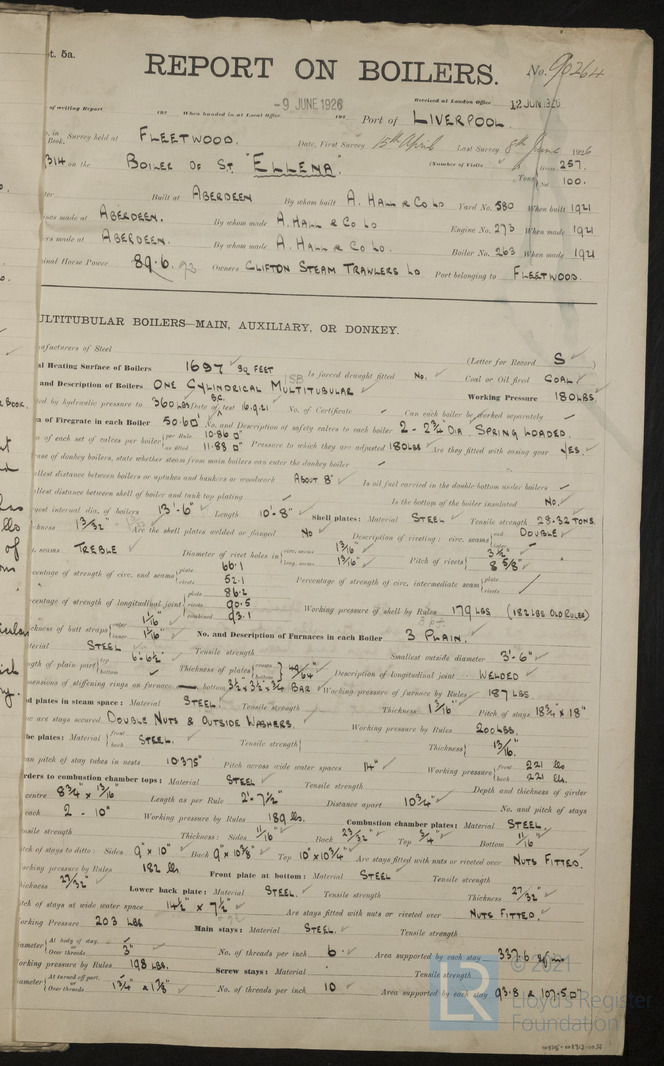 t. 5a.
REPORT ON BOILERS.
No. 90264
of writing Report 192 When handed in at Local Office - 9 JUNE 1926 192 Port of LIVERPOOL. Received at London Office 12 JUN 1926
Survey held at FLEETWOOD. Date, First Survey 15th April Last Survey 8th June 1926
Book.
314 on the BOILER OF ST "ELLENA" (Number of Visits Gross 257.
Tons Net 100.
Built at ABERDEEN By whom built A. HALL & CO LD Yard No. 580 When built 1921
made at ABERDEEN. By whom made A. HALL & CO LD Engine No. 273 When made 1921
made at ABERDEEN. By whom made A. HALL & CO LD. Boiler No. 263 When made 1921
Horse Power 89.6. 93 Owners CLIFTON STEAM TRAWLERS LD Port belonging to FLEETWOOD.
ULTITUBULAR BOILERS—MAIN, AUXILIARY, OR DONKEY.
ufacturers of Steel (Letter for Record S )
al Heating Surface of Boilers 1697 SQ FEET Is forced draught fitted NO. Coal or Oil fired COAL
and Description of Boilers ONE CYLINDRICAL MULTITUBULAR 1SB Working Pressure 180LBS
ed by hydraulic pressure to 360LBS Date of test 16.9.21 No. of Certificate Can each boiler be worked separately
a of Firegrate in each Boiler 50.60 No. and Description of safety valves to each boiler 2 - 2¾" DIA. SPRING LOADED.
of each set of valves per boiler per Rule 10.86 as fitted 11.88 Pressure to which they are adjusted 180LBS Are they fitted with easing gear YES.
ase of donkey boilers, state whether steam from main boilers can enter the donkey boiler
llest distance between boilers or uptakes and bunkers or woodwork ABOUT 8" Is oil fuel carried in the double bottom under boilers
llest distance between shell of boiler and tank top plating Is the bottom of the boiler insulated NO.
gest internal dia. of boilers 13'-6" Length 10'-8" Shell plates: Material STEEL Tensile strength 28-32 TONS.
ckness 13/32" Are the shell plates welded or flanged NO Description of riveting: circ. seams end DOUBLE
seams TREBLE Diameter of rivet holes in circ. seams 13/16" long. seams 13/16" Pitch of rivets 3½" 8 5/8"
centage of strength of circ. end seams plate 66.1 rivets 52.1 Percentage of strength of circ. intermediate seam plate rivets
centage of strength of longitudinal joint plate 86.2 rivets 90.5 combined 93.1 Working pressure of shell by Rules 179 LBS (182 LBS OLD RULES)
ckness of butt straps outer 1/16" inner 1/16" No. and Description of Furnaces in each Boiler 3 PLAIN.
terial STEEL Tensile strength Smallest outside diameter 3'-6"
gth of plain part top 6'-6½" bottom Thickness of plates crown bottom 49/64" Description of longitudinal joint WELDED
mensions of stiffening rings on furnace bottom 3½ x 3½ x ¾ BAR Working pressure of furnace by Rules 187 LBS
d plates in steam space: Material STEEL. Tensile strength Thickness 1 3/16" Pitch of stays 18¾" x 18"
are stays secured DOUBLE NUTS & OUTSIDE WASHERS. Working pressure by Rules 200LBS.
be plates: Material front back STEEL. Tensile strength Thickness 13/16"
an pitch of stay tubes in nests 10.375" Pitch across wide water spaces 14" Working pressure front 221 lbs back 221 lbs.
rders to combustion chamber tops: Material STEEL Tensile strength Depth and thickness of girder
centre 8¾" x 13/16" Length as per Rule 2'-7½" Distance apart 10¾" No. and pitch of stays
each 2 - 10" Working pressure by Rules 189 lbs. Combustion chamber plates: Material STEEL.
nsile strength Thickness: Sides 11/16" Back 23/32" Top ¾" Bottom 11/16"
tch of stays to ditto: Sides 9" x 10" Back 9" x 10⅜" Top 10" x 10¾" Are stays fitted with nuts or riveted over NUTS FITTED.
orking pressure by Rules 182 lbs Front plate at bottom: Material STEEL Tensile strength
ickness 27/32" Lower back plate: Material STEEL. Tensile strength Thickness 27/32"
tch of stays at wide water space 14½" x 7½" Are stays fitted with nuts or riveted over NUTS FITTED.
orking Pressure 203 LBS Main stays: Material STEEL. Tensile strength
ameter At body of stay, or Over threads 3" No. of threads per inch 6 Area supported by each stay 337.6
orking pressure by Rules 198 LBS. Screw stays: Material Tensile strength
ameter At turned off part, or Over threads 1¾" & 1⅞" No. of threads per inch 10 Area supported by each stay 93.8 & 107.5
LR © 2021
Lloyd's Register
Foundation